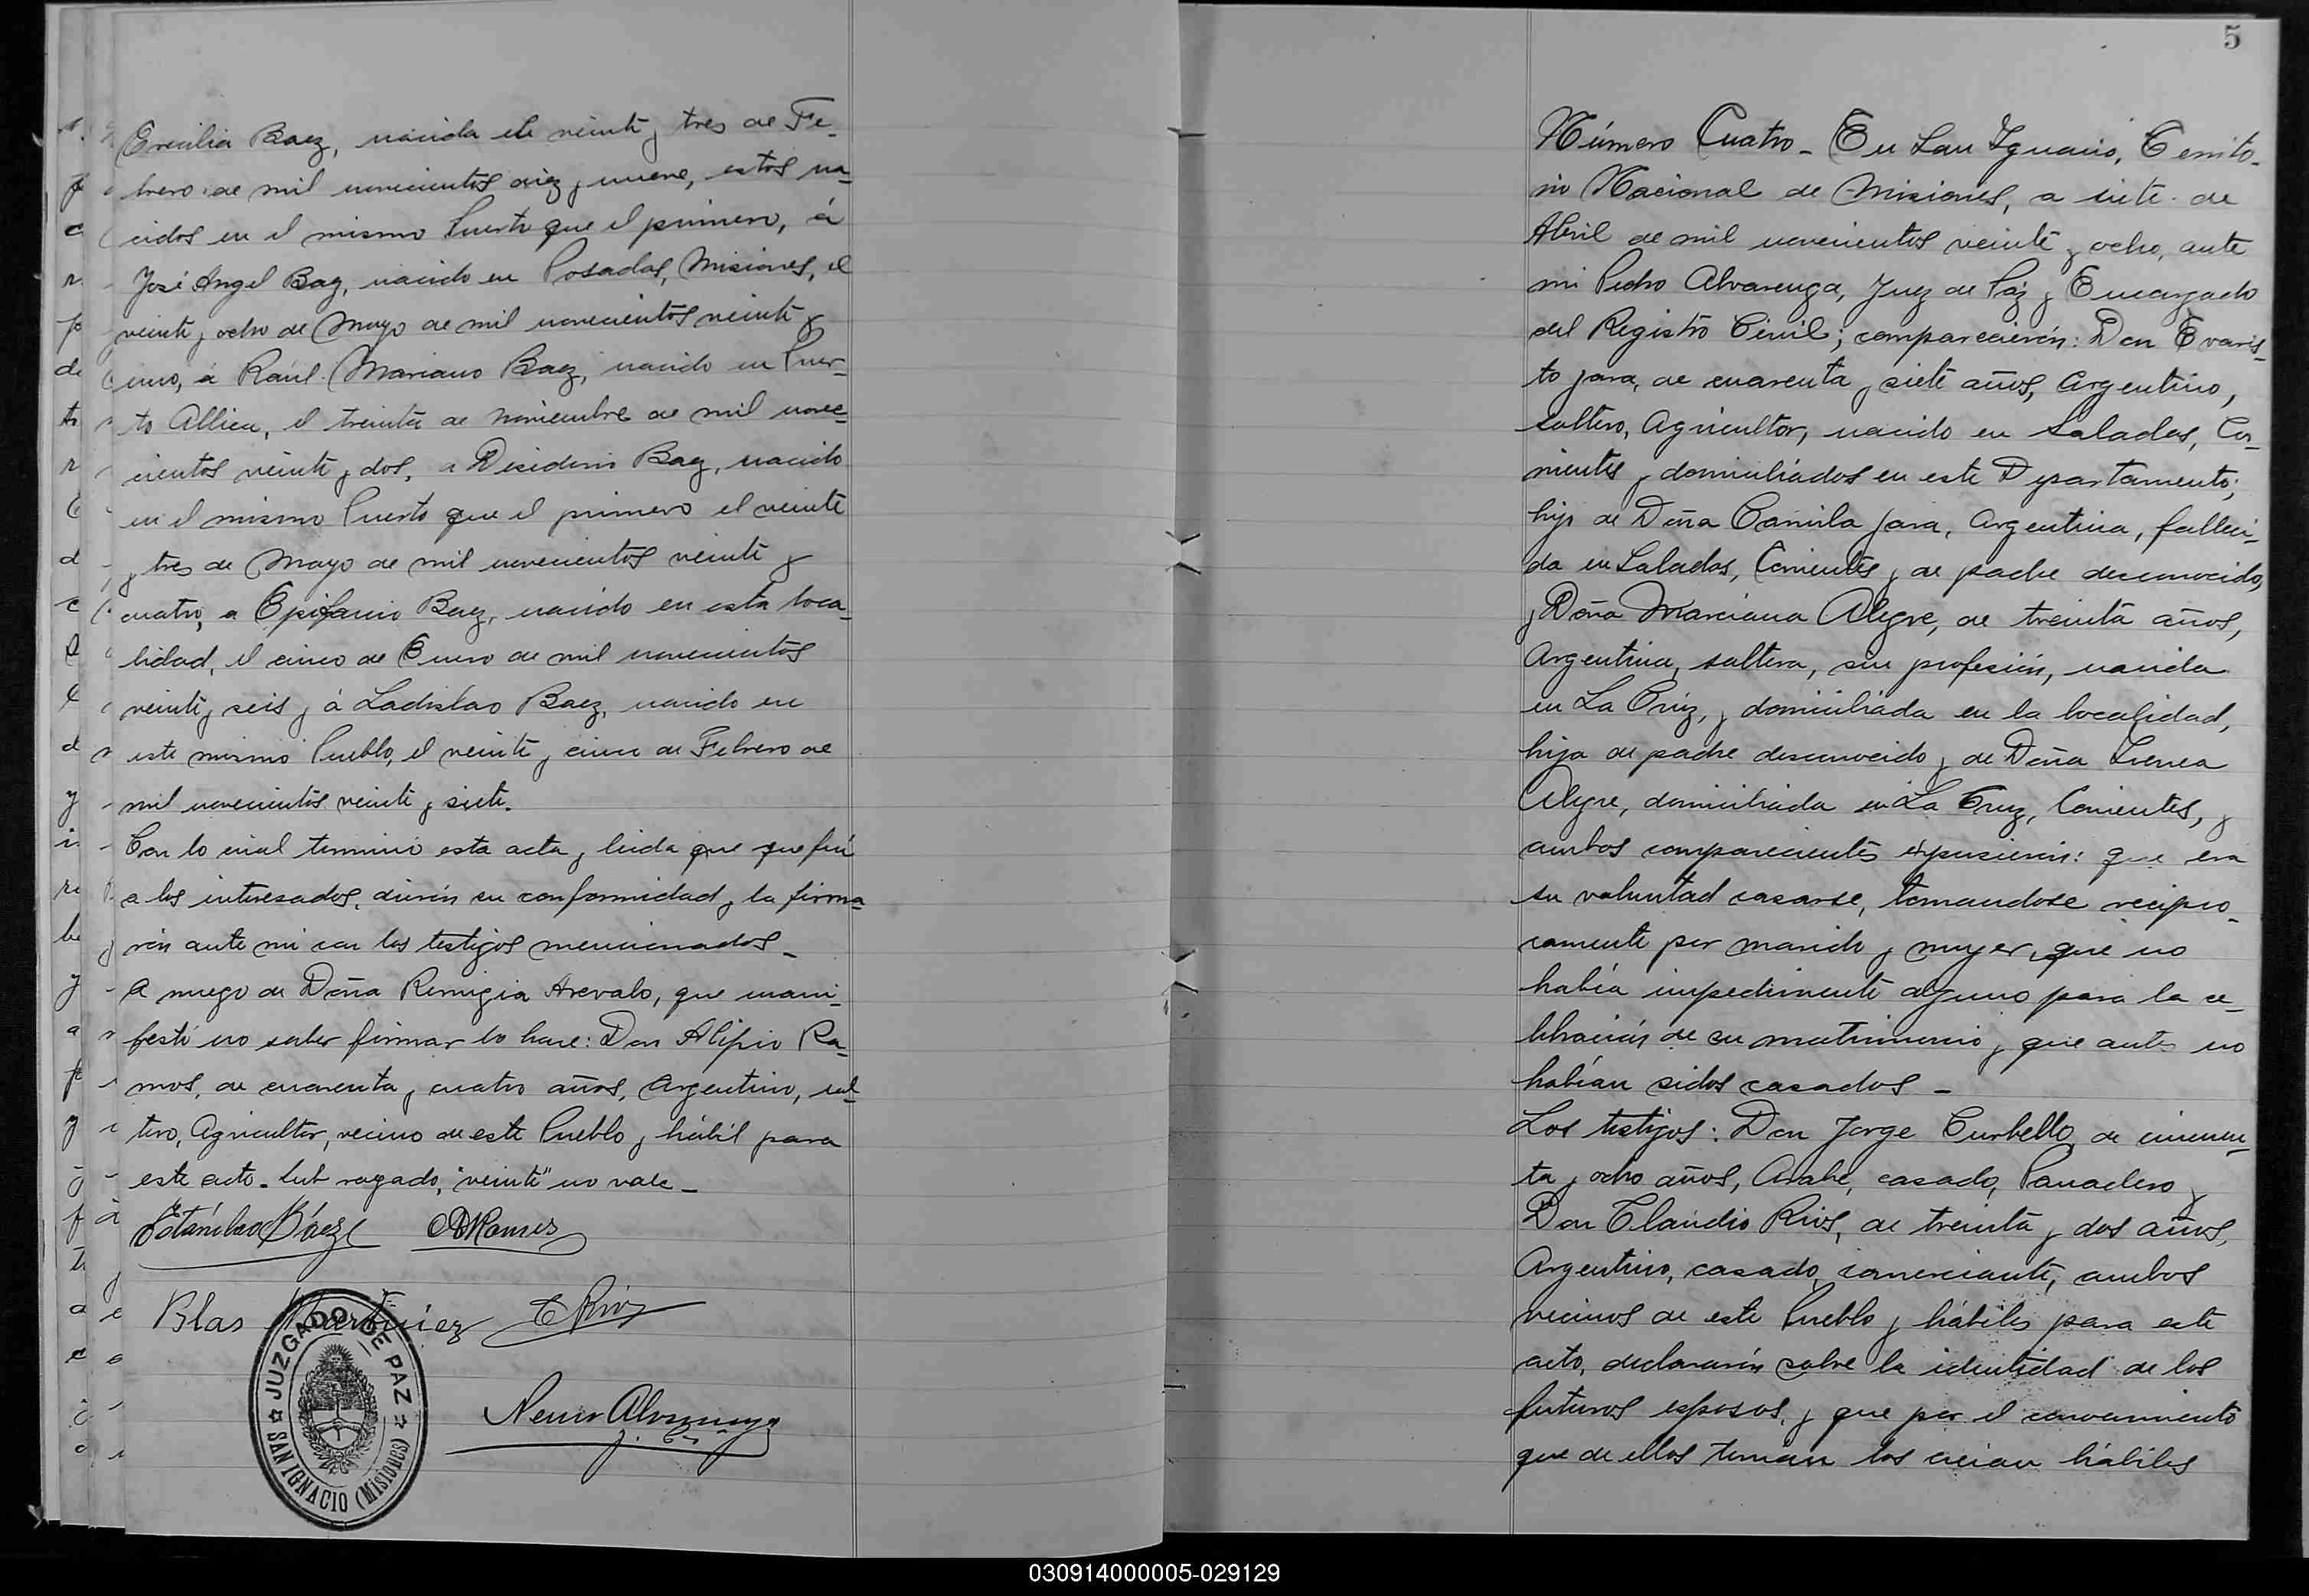 Ercilia Baez, nacida el veinte y tres de Fe-
brero de mil novecientos diez y nueve, estos na-
cidos en el mismo Puerto que el primero, á
José Angel Baez, nacido en Posadas, Misiones, el
veinte y ocho de Mayo de mil novecientos veinte y
uno, á Raúl Mariano Baez, nacido en Puer-
to Allica, el treinta de Noviembre de mil nove-
cientos veinte y dos, a Desiderio Baez, nacido
en el mismo Puerto que el primero el veinte
y tres de Mayo de mil novecientos veinte y
cuatro, a Epifanio Baez, nacido en esta loca-
lidad, el cinco de Enero de mil novecientos
veinte y seis y á Ladislao Baez, nacido en
este mismo Pueblo, el veinte y cinco de Febrero de
mil novecientos veinte y siete.
Con lo cual terminó esta acta y leida que que fué
a los interesados, dieron su conformidad y la firma-
rón ante mi con los testigos mencionados_
A ruego de Doña Remigia Arevalo, que mani-
festó no saber firmar lo hace: Don Alipio Ra-
mos, de cuarenta y cuatro años, Argentino, sol-
tero, Agricultor, vecino de este Pueblo y hábil para
este acto_ rayado, "veinte" no vale_
Estánislao Báez ARamos
Blas Martínez C Rios
Alvarenga
JUZGADO DE PAZ
SAN IGNACIO (MISIONES)
5
Número Cuatro_ En San Ignacio, Territo-
rio Nacional de Misiones, a siete de
Abril de mil novecientos veinte y ocho, ante
mi Pedro Alvarenga, Juez de Páz y Encargado
del Registro Civil; comparecierón: Don Evaris-
to Jara, de cuarenta y siete años, Argentino,
soltero, Agricultor, nacido en Saladas, Co-
rrientes y domiciliados en este Departamento;
hijo de Doña Camila Jara, Argentina, falleci-
da en Saladas, Corrientes y de padre desconocido,
y Doña Marciana Alegre, de treinta años,
Argentina, soltera, sin profesión, nacida
en La Crúz, y domiciliada en la localidad,
hija de padre desconocido y de Doña
Alegre, domiciliada en La Cruz, Corrientes, y
ambos comparecientes expusierón: que era
su voluntad casarse, tomandose recipro-
camente por marido y mujer, que no
había impedimento alguno para la ce-
lebración de su matrimonio y que antes no
habían sidos casados_
Los testigos: Don Jorge Curbello, de cincuen-
ta y ocho años, Arabe, casado, Panadero y
Don Claudio Rios, de treinta y dos años,
Argentino, casado, comerciante, ambos
vecinos de este Pueblo y hábiles para este
acto, declararón sobre la identidad de los
futuros esposos, y que por el conocimiento
que de ellos tenían los creian hábiles
030914000005-029129